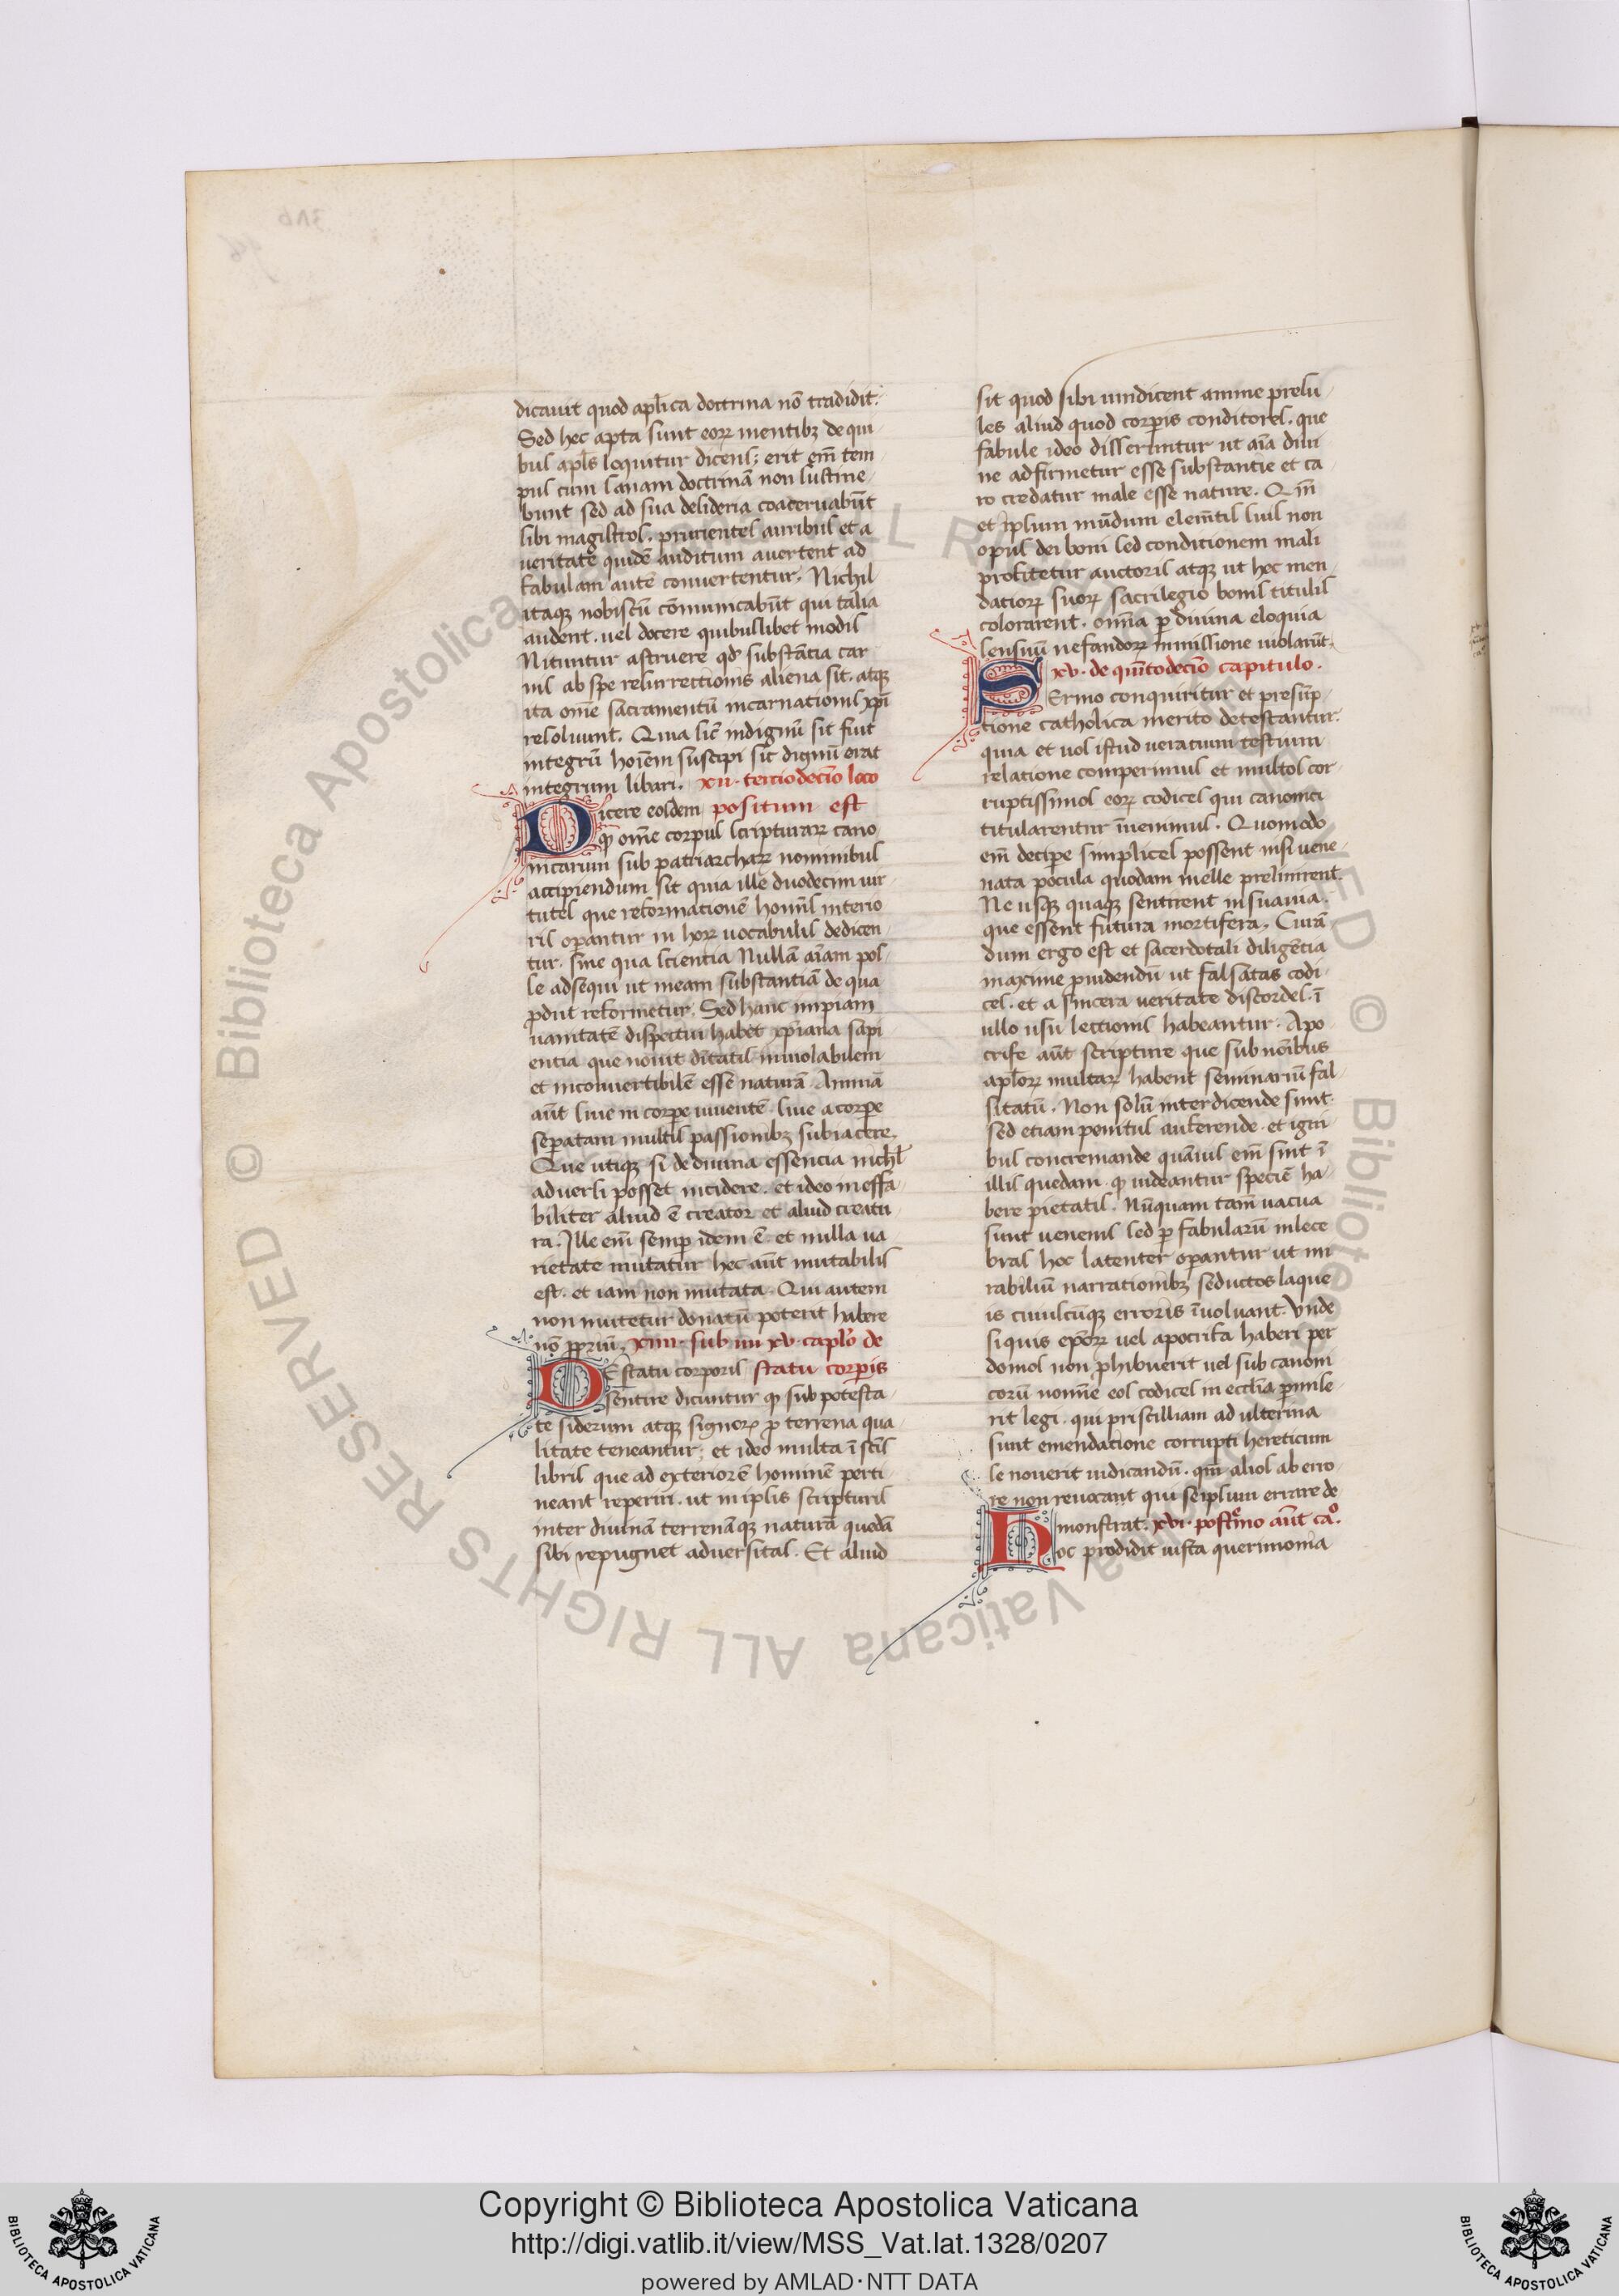 dicauit quod apl̄ica doctrina nō tradidit.
Sed hec apta sunt eoꝝ mentibꝫ de qui-
bus apl̄s loquitur dicens; erit em̄ tem-
pus cum sanam doctrinā non sustine-
bunt sed ad sua desideria coaceruabūt
sibi magistros, prurientes auribus et a
ueritate quidē auditum auertent ad
fabulam autē conuertentur. Nichil
itaqꝫ nobiscū cōmunicabūt qui talia
audent. uel docere quibuslibet modis
Nituntur astruere qd̄ substātia car
nis ab spe resurrectionis aliena sit. atqꝫ
ita om̄e sacramentū incarnationis xp̄i
resoluunt. Quia sic̄ indignū sit fuit
integrū hoīem suscipi sic̄ dignū erat
integrum libari. xii. terciodecīo loco
Dicere eosdem positum est
qꝫ om̄e corpus scripturaꝝ cano
nicarum sub patriarchaꝝ nominibus
accipiendum sit quia ille duodecim uir
tutes que reformationē homīs interio
ris operantur in hoꝝ uocabulis dedicen-
tur. sine qua scientia Nullā aīam pos-
se adsequi ut in eam substantiā de qua
ꝓdiit reformetur. Sed hanc impiam
uanitatē dispectui habet xp̄iana sapi-
entia que nouit dītatis inuiolabilem
et inconuertibilē esse naturā. Animā
aūt siue in corpe uiuentē. siue a corpe
sepatam multis passionibꝫ subiacere.
Que utiqꝫ si de diuina essencia nich̄l
aduersi posset incidere. et ideo ineffa-
biliter aliud ē creator et aliud creatu-
ra. Ille em̄ semp idem ē et nulla ua
rietate mutatur hec aūt mutabilis
est. et iam non mutata. Qui autem
non mutetur donatū poterit habere
nō ꝓpriū. xiiii. sub iiii xv. capl̄o de
DE statu corporis statu corpis
sentire dicuntur qꝫ sub potesta-
te siderum atqꝫ signoꝝ ꝓ terrena qua-
litate teneantur; et ideo multa ī sc̄is
libris que ad exteriorē hominē perti-
neant reperiri. ut in ipsis scripturis
inter diuinā terrenāqꝫ naturā quedā
sibi repugnet aduersitas. Et aliud
sit quod sibi uindicent anime presu-
les aliud quod corpis conditores. que
fabule ideo disseruntur ut aīa diui
ne adfirmetur esse substantie et ca-
ro credatur male esse nature. Qm̄
et ipsum mūdum elemētis suis non
opus dei boni sed conditionem mali
profitetur auctoris atqꝫ ut hec men-
datioꝝ suoꝝ sacrilegio bonis titulis
colorarent. omīa p diuina eloquia
sensuū nefandoꝝ inmissione uiolarūt.
xv. de quītodecīo capitulo.
Sermo conquiritur et presūp-
tione catholica merito detestantur.
quia et uol istud ueracium testium
relatione comperimus et multos cor-
ruptissimos eoꝝ codices qui canonici
titularentur īuenimus. Quomodo
em̄ decipe simplices possent nisi uene-
nata pocula quodam melle prelinirent.
Ne usqꝫ quaqꝫ sentirent insuauia.
que essent futura mortifera. Curā
dum ergo est et sacerdotali diligētia
maxime ꝓuidendū ut falsatas codi-
ces. et a sincera ueritate discordes. ī
ullo usu lectionis habeantur. Apo-
crife aūt scripture que sub nōibus
apl̄oꝝ multaꝝ habent seminariū fal-
sitatū. Non solū interdicende sunt.
sed etiam penitus auferende. et igni
bus concremande quāuis em̄ sint ī
illis quedam. qꝫ uideantur speciē ha-
bere pietatis. Nūquam tam̄ uacua
sunt uenenis sed p fabularū inlece
bras hoc latenter operantur ut mi
rabiliū narrationibꝫ seductos laque
is cuiuscūqꝫ erroris īuoluant. Vnde
si quis ep̄oꝝ uel apocrifa haberi per
domos non ꝓhibuerit uel sub canoni
corū nomīe eos codices in eccl̄ia pmise-
rit legi. qui priscilliam adulterina
sunt emendatione corrupti hereticum
se nouerit iudicandū. qm̄ alios ab erro-
re non reuocant qui seipsum errare de
monstrat. xvi. postrēo aūt cå.
hoc prodidit iusta querimonia
Copyright © Biblioteca Apostolica Vaticana
http://digi.vatlib.it/view/MSS_Vat.lat.1328/0207
powered by AMLAD·NTT DATA
BIBLIOTECA APOSTOLICA VATICANA
BIBLIOTECA APOSTOLICA VATICANA
© Biblioteca Apostolica Vaticana ALL RIGHTS RESERVED